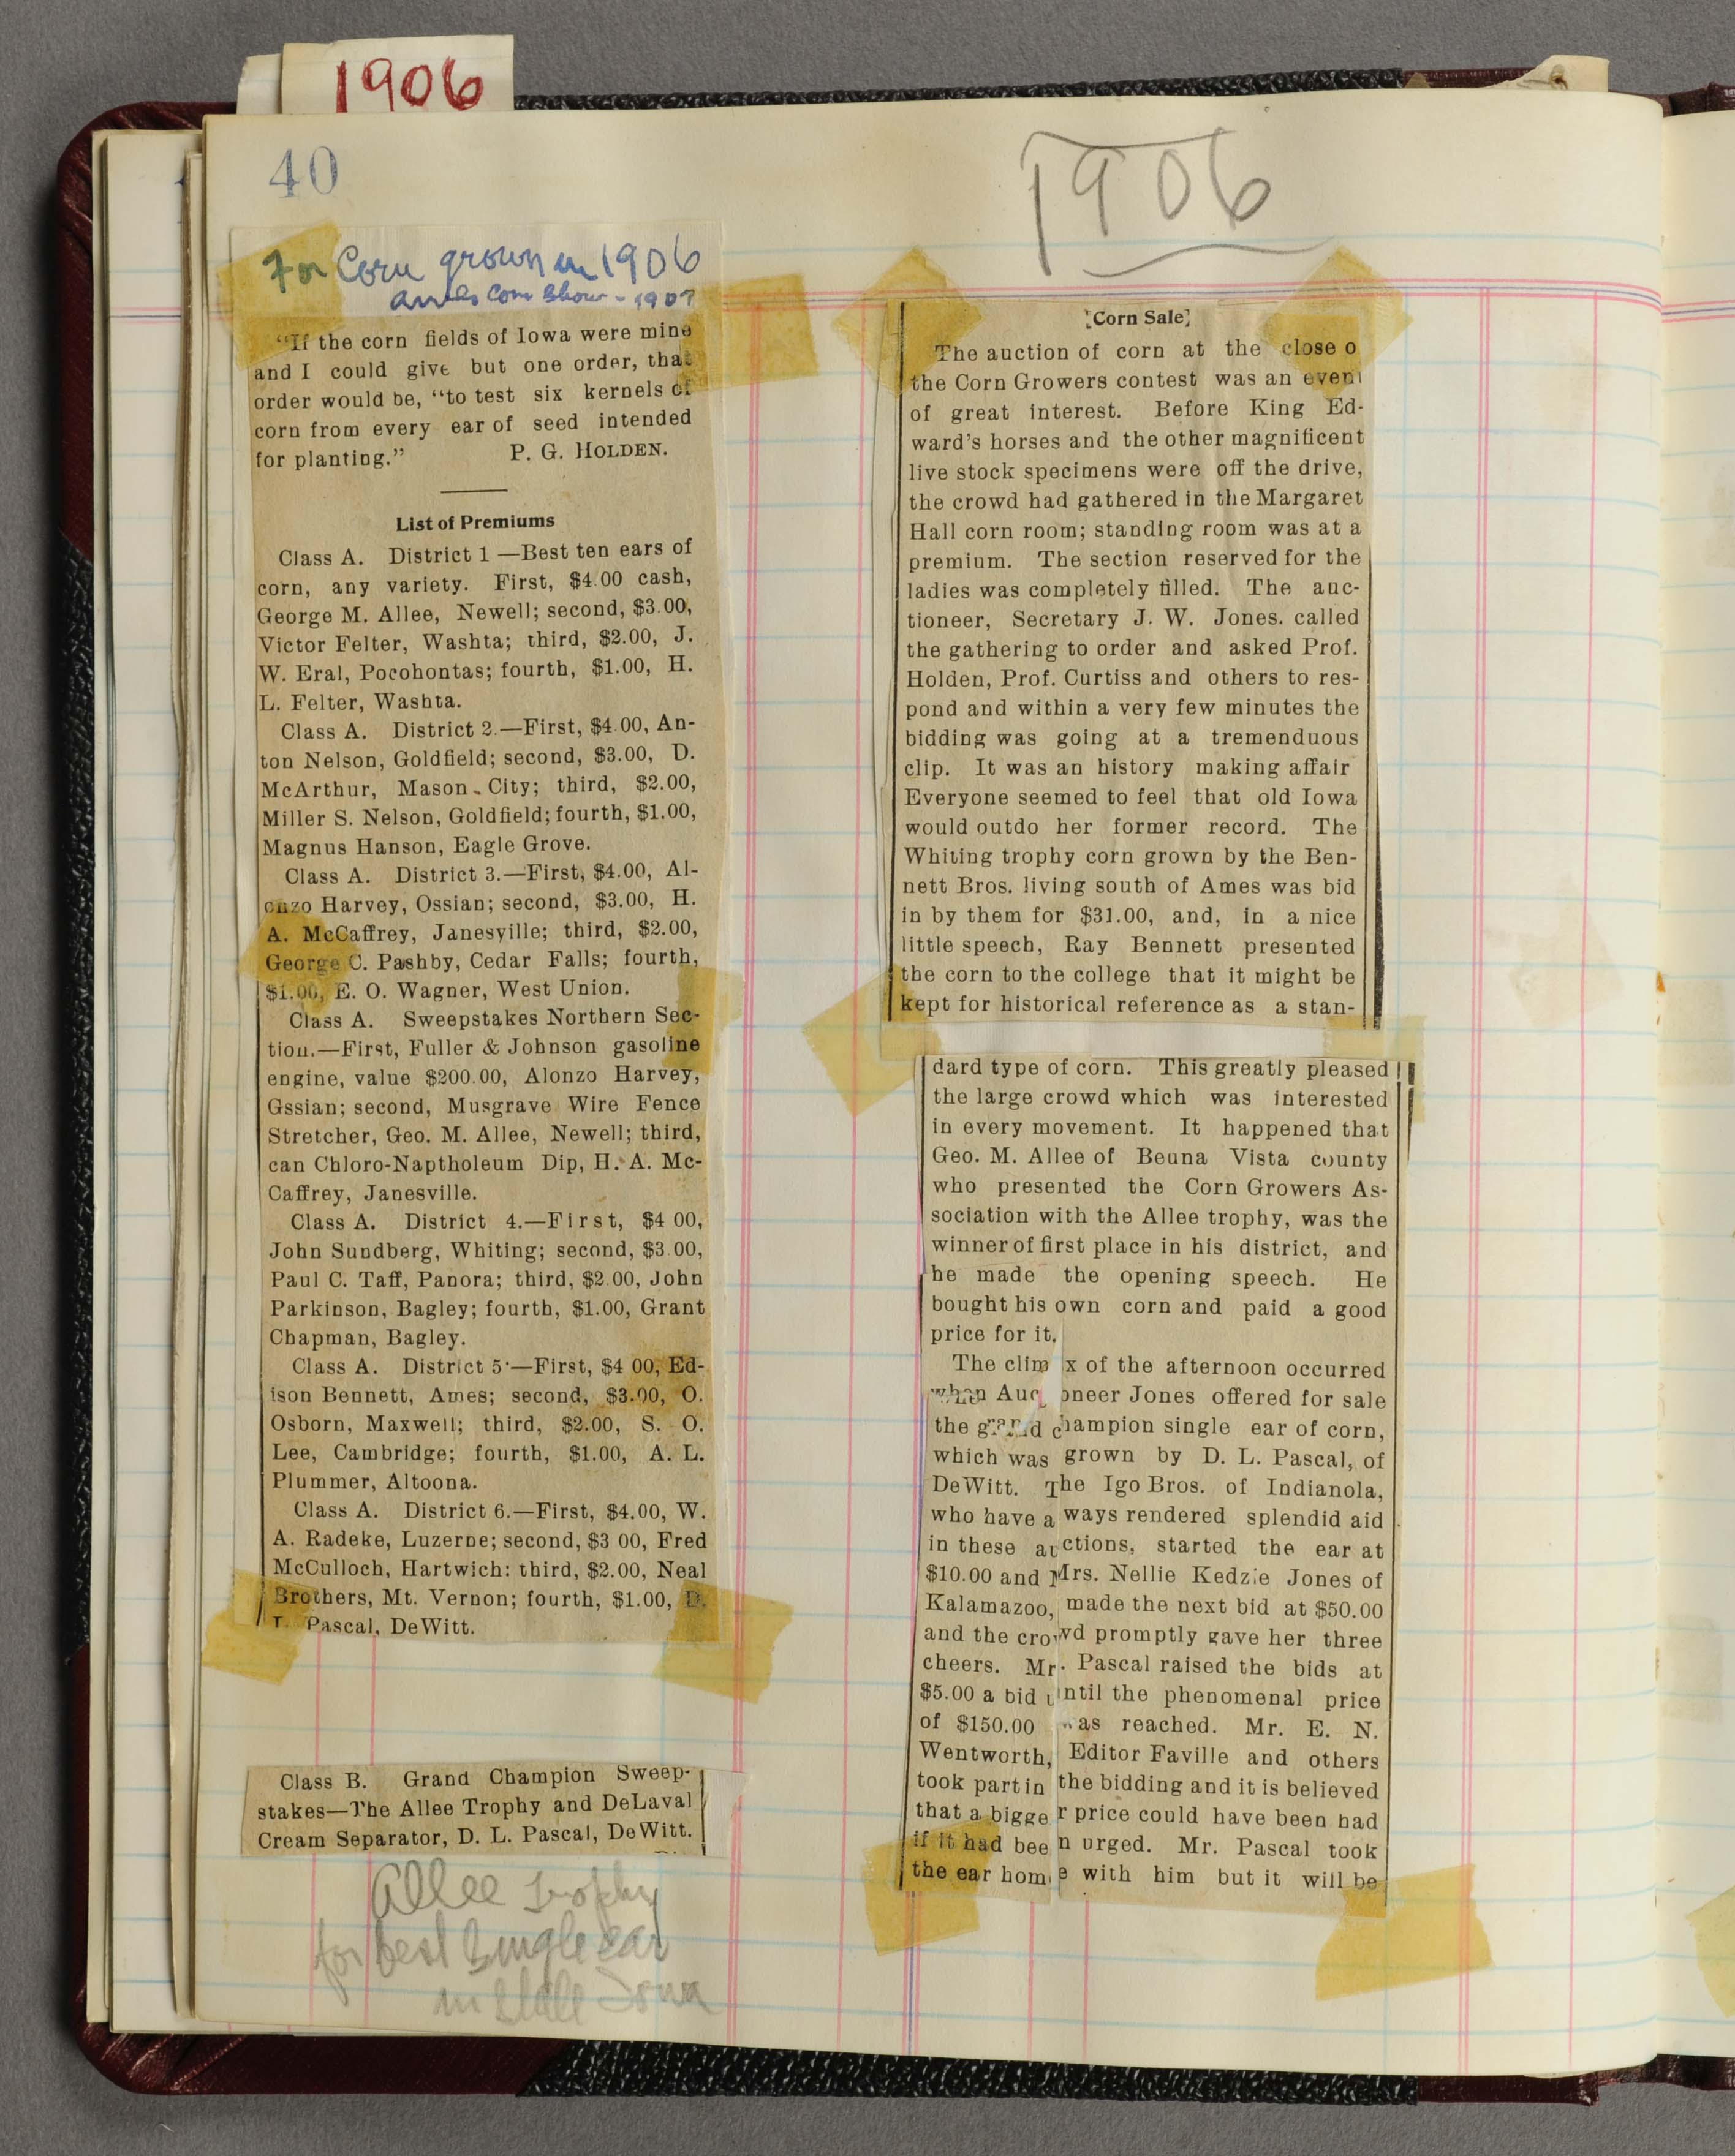 1906
40
1906
For Corn grown in 1906
Ames Corn Show - 1907
"If the corn fields of Iowa were mine
and I could give but one order, that
order would be, "to test six kernels of
corn from every ear of seed intended
for planting." P. G. HOLDEN.
List of Premiums
Class A. District 1—Best ten ears of
corn, any variety. First, $4.00 cash,
George M. Allee, Newell; second, $3.00,
Victor Felter, Washta; third, $2.00, J.
W. Eral, Pocohontas; fourth, $1.00, H.
L. Felter, Washta.
Class A. District 2.—First, $4.00, An-
ton Nelson, Goldfield; second, $3.00, D.
McArthur, Mason City; third, $2.00,
Miller S. Nelson, Goldfield; fourth, $1.00,
Magnus Hanson, Eagle Grove.
Class A. District 3.—First, $4.00, Al-
onzo Harvey, Ossian; second, $3.00, H.
A. McCaffrey, Janesville; third, $2.00,
George C. Pashby, Cedar Falls; fourth,
$1.00, E. O. Wagner, West Union.
Class A. Sweepstakes Northern Sec-
tion.—First, Fuller & Johnson gasoline
engine, value $200.00, Alonzo Harvey,
Gssian; second, Musgrave Wire Fence
Stretcher, Geo. M. Allee, Newell; third,
can Chloro-Naptholeum Dip, H. A. Mc-
Caffrey, Janesville.
Class A. District 4.—First, $4 00,
John Sundberg, Whiting; second, $3.00,
Paul C. Taff, Panora; third, $2.00, John
Parkinson, Bagley; fourth, $1.00, Grant
Chapman, Bagley.
Class A. District 5·—First, $4 00, Ed-
ison Bennett, Ames; second, $3.00, O.
Osborn, Maxwell; third, $2.00, S. O.
Lee, Cambridge; fourth, $1.00, A. L.
Plummer, Altoona.
Class A. District 6.—First, $4.00, W.
A. Radeke, Luzerne; second, $3 00, Fred
McCulloch, Hartwich: third, $2.00, Neal
Brothers, Mt. Vernon; fourth, $1.00, D.
L. Pascal, DeWitt.
Class B. Grand Champion Sweep-
stakes—The Allee Trophy and DeLaval
Cream Separator, D. L. Pascal, DeWitt.
Allee trophy
for best single ear
in State Iowa
[Corn Sale]
The auction of corn at the close o
the Corn Growers contest was an event
of great interest. Before King Ed-
ward's horses and the other magnificent
live stock specimens were off the drive,
the crowd had gathered in the Margaret
Hall corn room; standing room was at a
premium. The section reserved for the
ladies was completely filled. The auc-
tioneer, Secretary J. W. Jones. called
the gathering to order and asked Prof.
Holden, Prof. Curtiss and others to res-
pond and within a very few minutes the
bidding was going at a tremenduous
clip. It was an history making affair
Everyone seemed to feel that old Iowa
would outdo her former record. The
Whiting trophy corn grown by the Ben-
nett Bros. living south of Ames was bid
in by them for $31.00, and, in a nice
little speech, Ray Bennett presented
the corn to the college that it might be
kept for historical reference as a stan-
dard type of corn. This greatly pleased
the large crowd which was interested
in every movement. It happened that
Geo. M. Allee of Beuna Vista county
who presented the Corn Growers As-
sociation with the Allee trophy, was the
winner of first place in his district, and
he made the opening speech. He
bought his own corn and paid a good
price for it.
The clim x of the afternoon occurred
when Auc oneer Jones offered for sale
the grand champion single ear of corn,
which was grown by D. L. Pascal, of
DeWitt. The Igo Bros. of Indianola,
who have a ways rendered splendid aid
in these auctions, started the ear at
$10.00 and Mrs. Nellie Kedzie Jones of
Kalamazoo, made the next bid at $50.00
and the crowd promptly gave her three
cheers. Mr. Pascal raised the bids at
$5.00 a bid until the phenomenal price
of $150.00 was reached. Mr. E. N.
Wentworth, Editor Faville and others
took part in the bidding and it is believed
that a bigger price could have been had
if it had been urged. Mr. Pascal took
the ear home with him but it will be